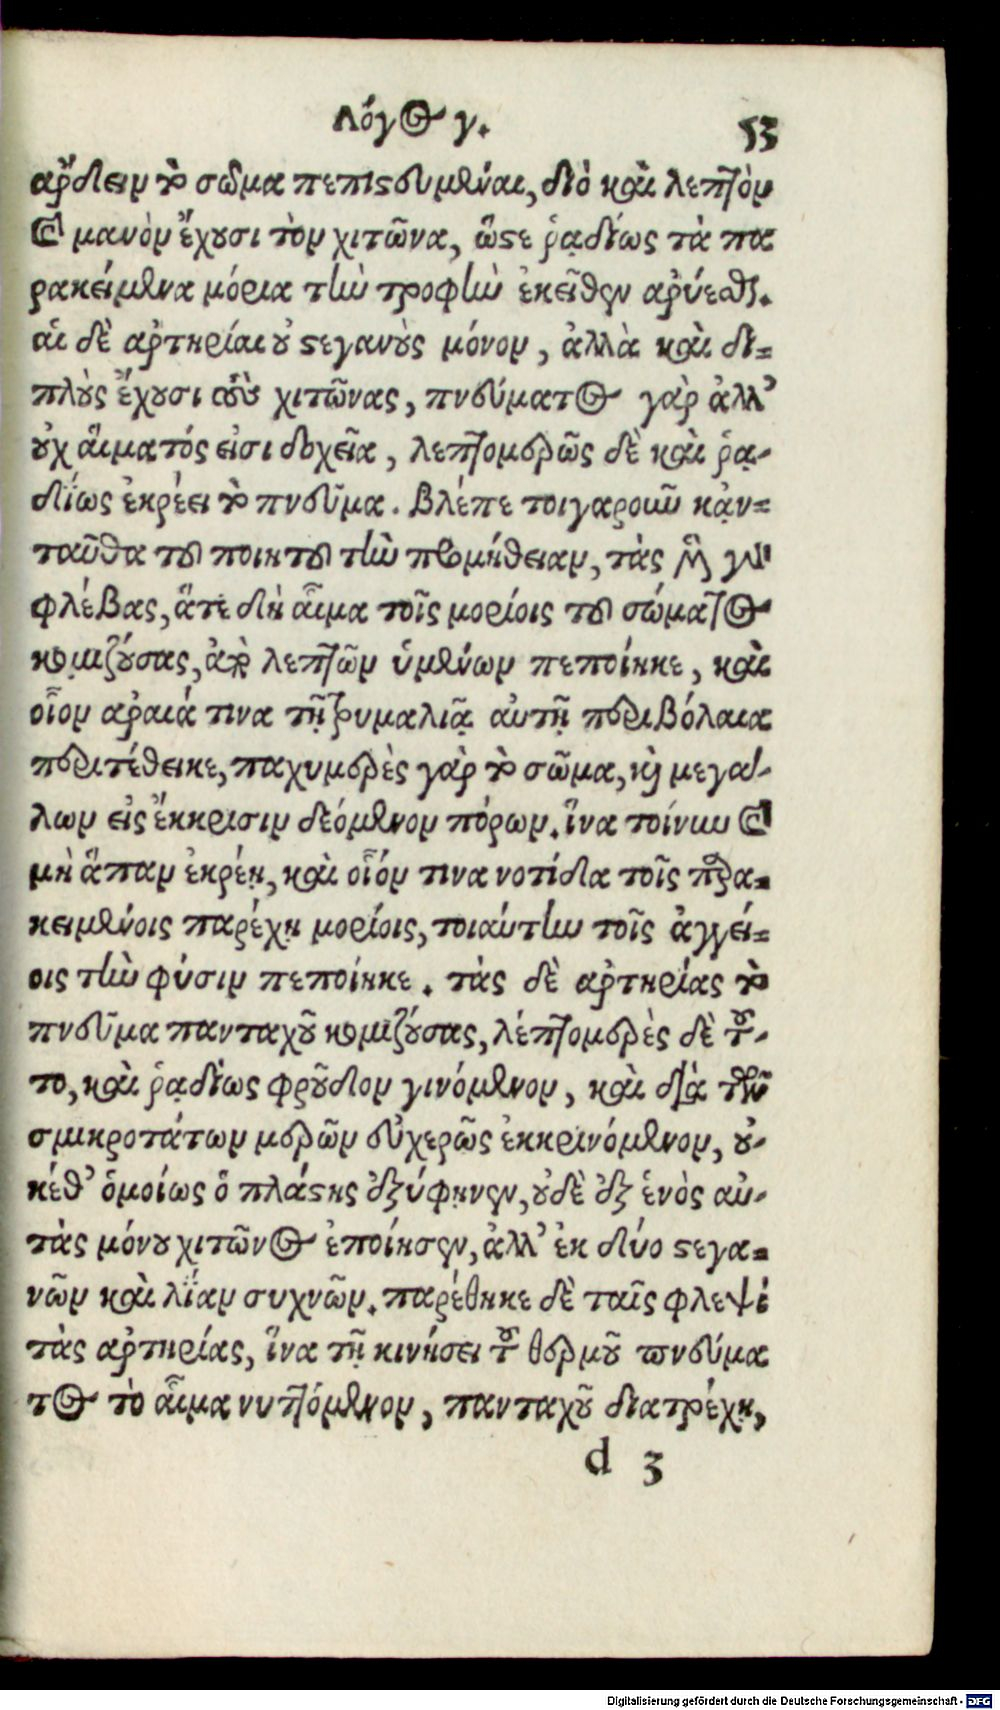 Λόγος γ. 53
ἄρδειν τὸ σῶμα πεπιστευμέναι, διὸ καὶ λεπτὸν
καὶ μανὸν ἔχουσι τὸν χιτῶνα, ὥστε ῥᾳδίως τὰ πα
ρακείμενα μόρια τὴν τροφὴν ἐκεῖθεν ἀρύεσθαι.
αἱ δὲ ἀρτηρίαι οὐ στεγανοὺς μόνον, ἀλλὰ καὶ δι-
πλοὺς ἔχουσι τοὺς χιτῶνας, πνεύματος γὰρ ἀλλ’
οὐχ αἵματός εἰσι δοχεῖα, λεπτομερῶς δὲ καὶ ῥᾳ-
δίως ἐκρέει τὸ πνεῦμα. Βλέπε τοιγαροῦν κἀν-
ταῦθα τοῦ ποιητοῦ τὴν προμήθειαν, τὰς μὲν γὰρ
φλέβας, ἅτε δὴ αἷμα τοῖς μορίοις τοῦ σώματος
κομιζούσας, ἀπὸ λεπτῶν ὑμένων πεποίηκε, καὶ
οἷον ἀραιά τινα τῇ τρυμαλιᾷ αὐτῇ περιβόλαια
περιτέθεικε, παχυμερὲς γὰρ τὸ σῶμα, καὶ μεγά-
λων εἰς ἔκκρισιν δεόμενον πόρων. ἵνα τοίνυν καὶ
μὴ ἅπαν ἐκρέῃ, καὶ οἷόν τινα νοτίδα τοῖς παρα-
κειμένοις παρέχῃ μορίοις, τοιαύτην τοῖς ἀγγεί-
οις τὴν φύσιν πεποίηκε. τὰς δὲ ἀρτηρίας τὸ
πνεῦμα πανταχοῦ κομιζούσας, λεπτομερὲς δὲ τοῦ-
το, καὶ ῥᾳδίως φροῦδον γινόμενον, καὶ διὰ τῶν
σμικροτάτων μερῶν εὐχερῶς ἐκκρινόμενον, οὐ-
κέθ’ ὁμοίως ὁ πλάστης ἐξύφηνεν, οὐδὲ ἐξ ἑνὸς αὐ-
τὰς μόνου χιτῶνος ἐποίησεν, ἀλλ’ ἐκ δύο στεγα-
νῶν καὶ λίαν συχνῶν. παρέθηκε δὲ ταῖς φλεψὶ
τὰς ἀρτηρίας, ἵνα τῇ κινήσει τοῦ θερμοῦ πνεύμα
τος τὸ αἷμα νυττόμενον, πανταχοῦ διατρέχῃ,
d 3
Digitalisierung gefördert durch die Deutsche Forschungsgemeinschaft - DFG